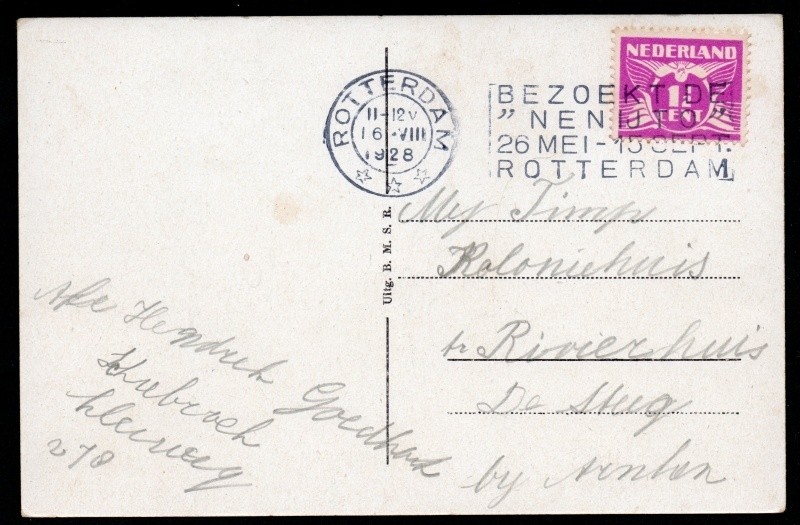 NEDERLAND
1½
CENT
ROTTERDAM
11-12V
16 VIII
1928
BEZOEKT DE
"NENIJTO"
26 MEI-15 SEPT.
ROTTERDAM
1
Uitg. B. M. S. R.
My Timp
Koloniehuis
Rivierhuis
De Steeg
by Arnhem
Hendrik Goedhart
kleiweg
278